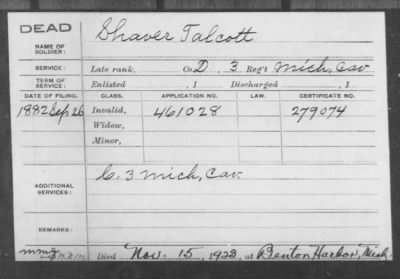 DEAD
NAME OF SOLDIER:
Shaver Talcott
SERVICE:
Late rank, Co. D, 3 Reg't Mich, Cav
TERM OF SERVICE:
Enlisted , 1 Discharged , 1
DATE OF FILING. CLASS. APPLICATION NO. LAW. CERTIFICATE NO.
1882 Sep 26 Invalid, 461028 279074
Widow,
Minor,
ADDITIONAL SERVICES:
C. 3 Mich, Cav.
REMARKS:
Died Nov. 15, 1923, at Benton Harbor, Mich